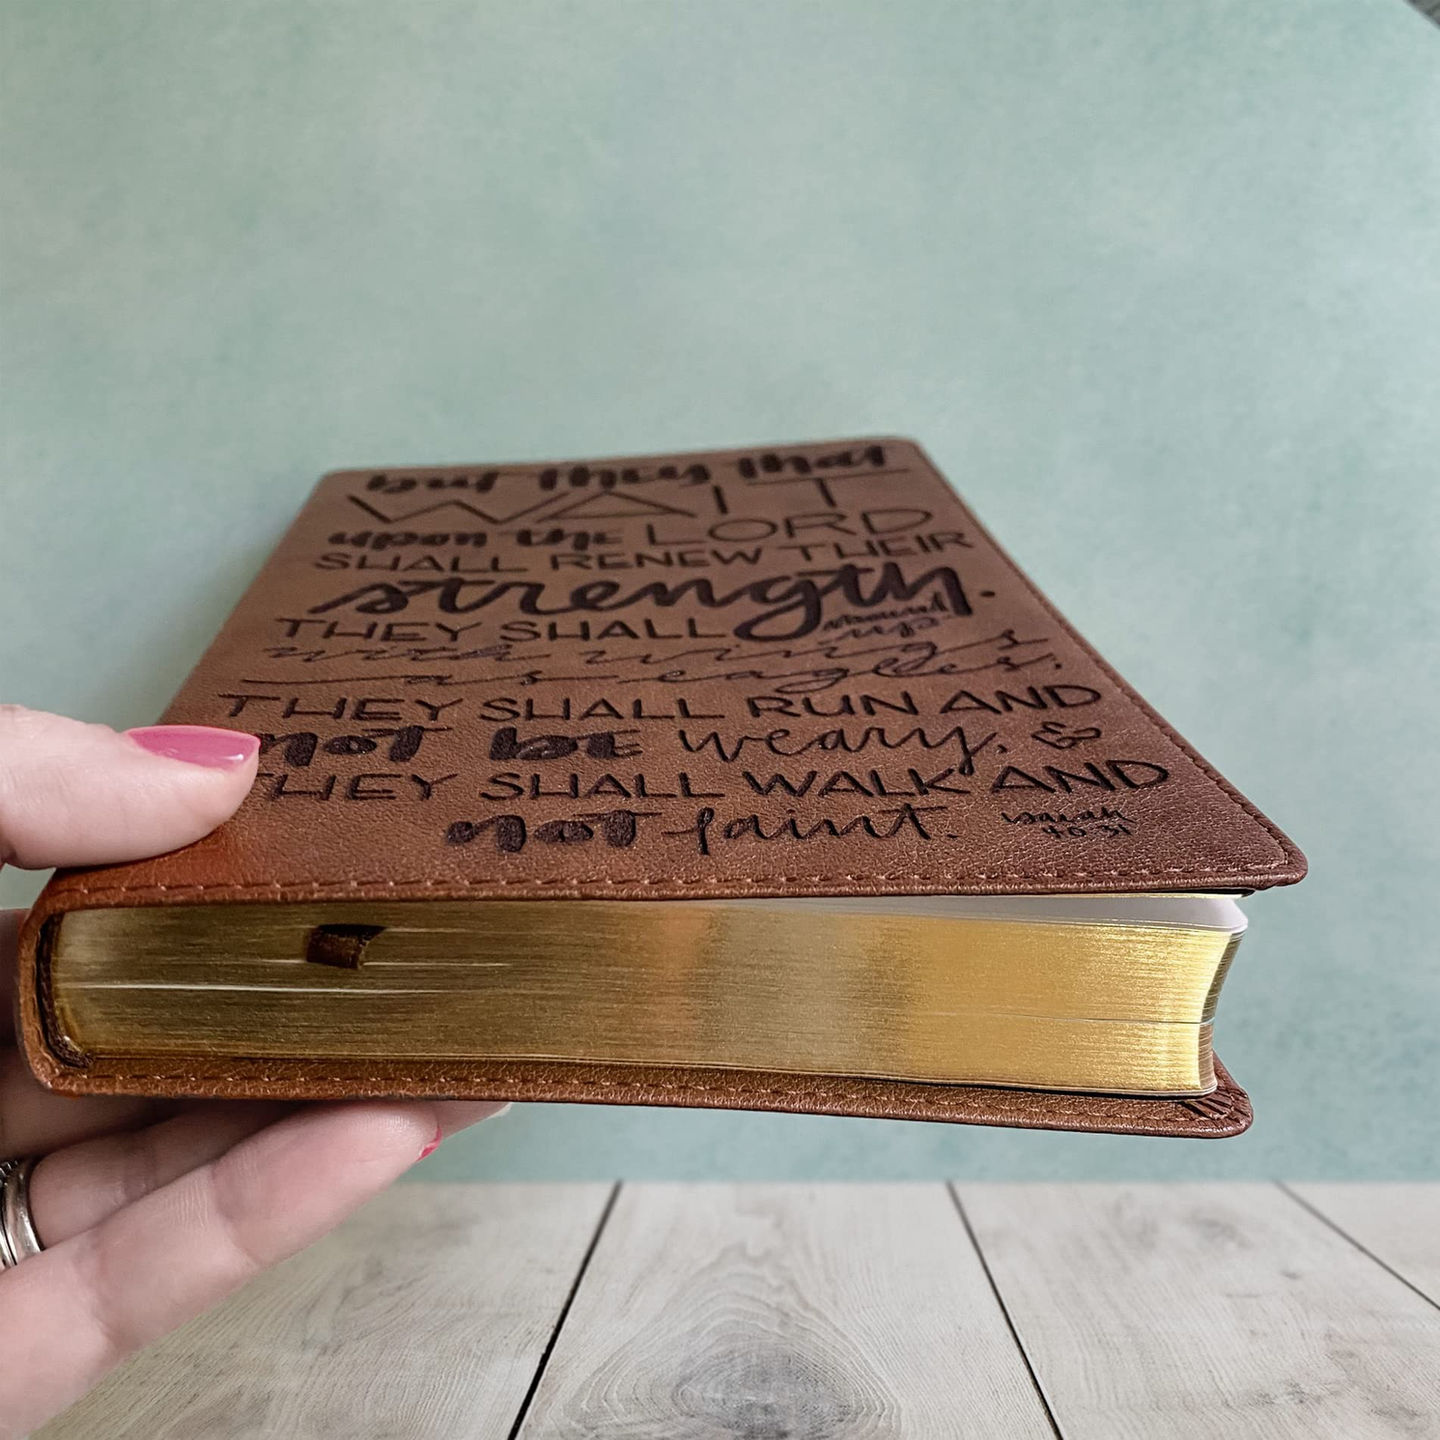 but they that
WAIT
upon the LORD
SHALL RENEW THEIR
strength.
THEY SHALL mount up
with wings
as eagles:
THEY SHALL RUN AND
not be weary, &
THEY SHALL WALK AND
not faint.
isaiah
40:31